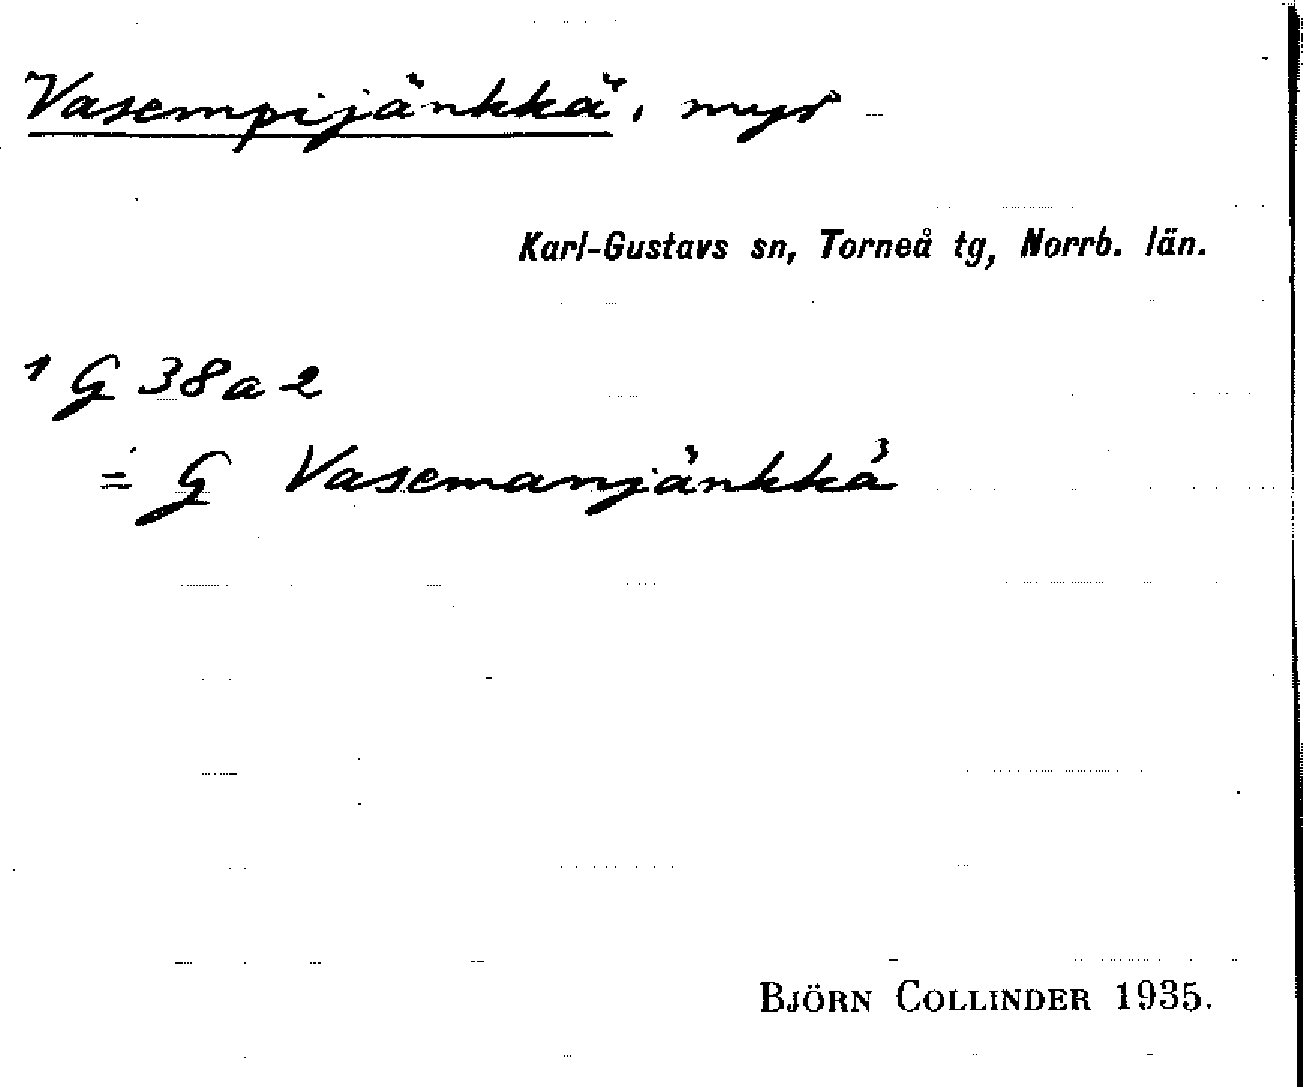 Vasempijänkkä, myr
Karl-Gustavs sn, Torneå tg, Norrb. län.
1 G 38 a 2
= G Vasemanjänkkä
BJÖRN COLLINDER 1935.